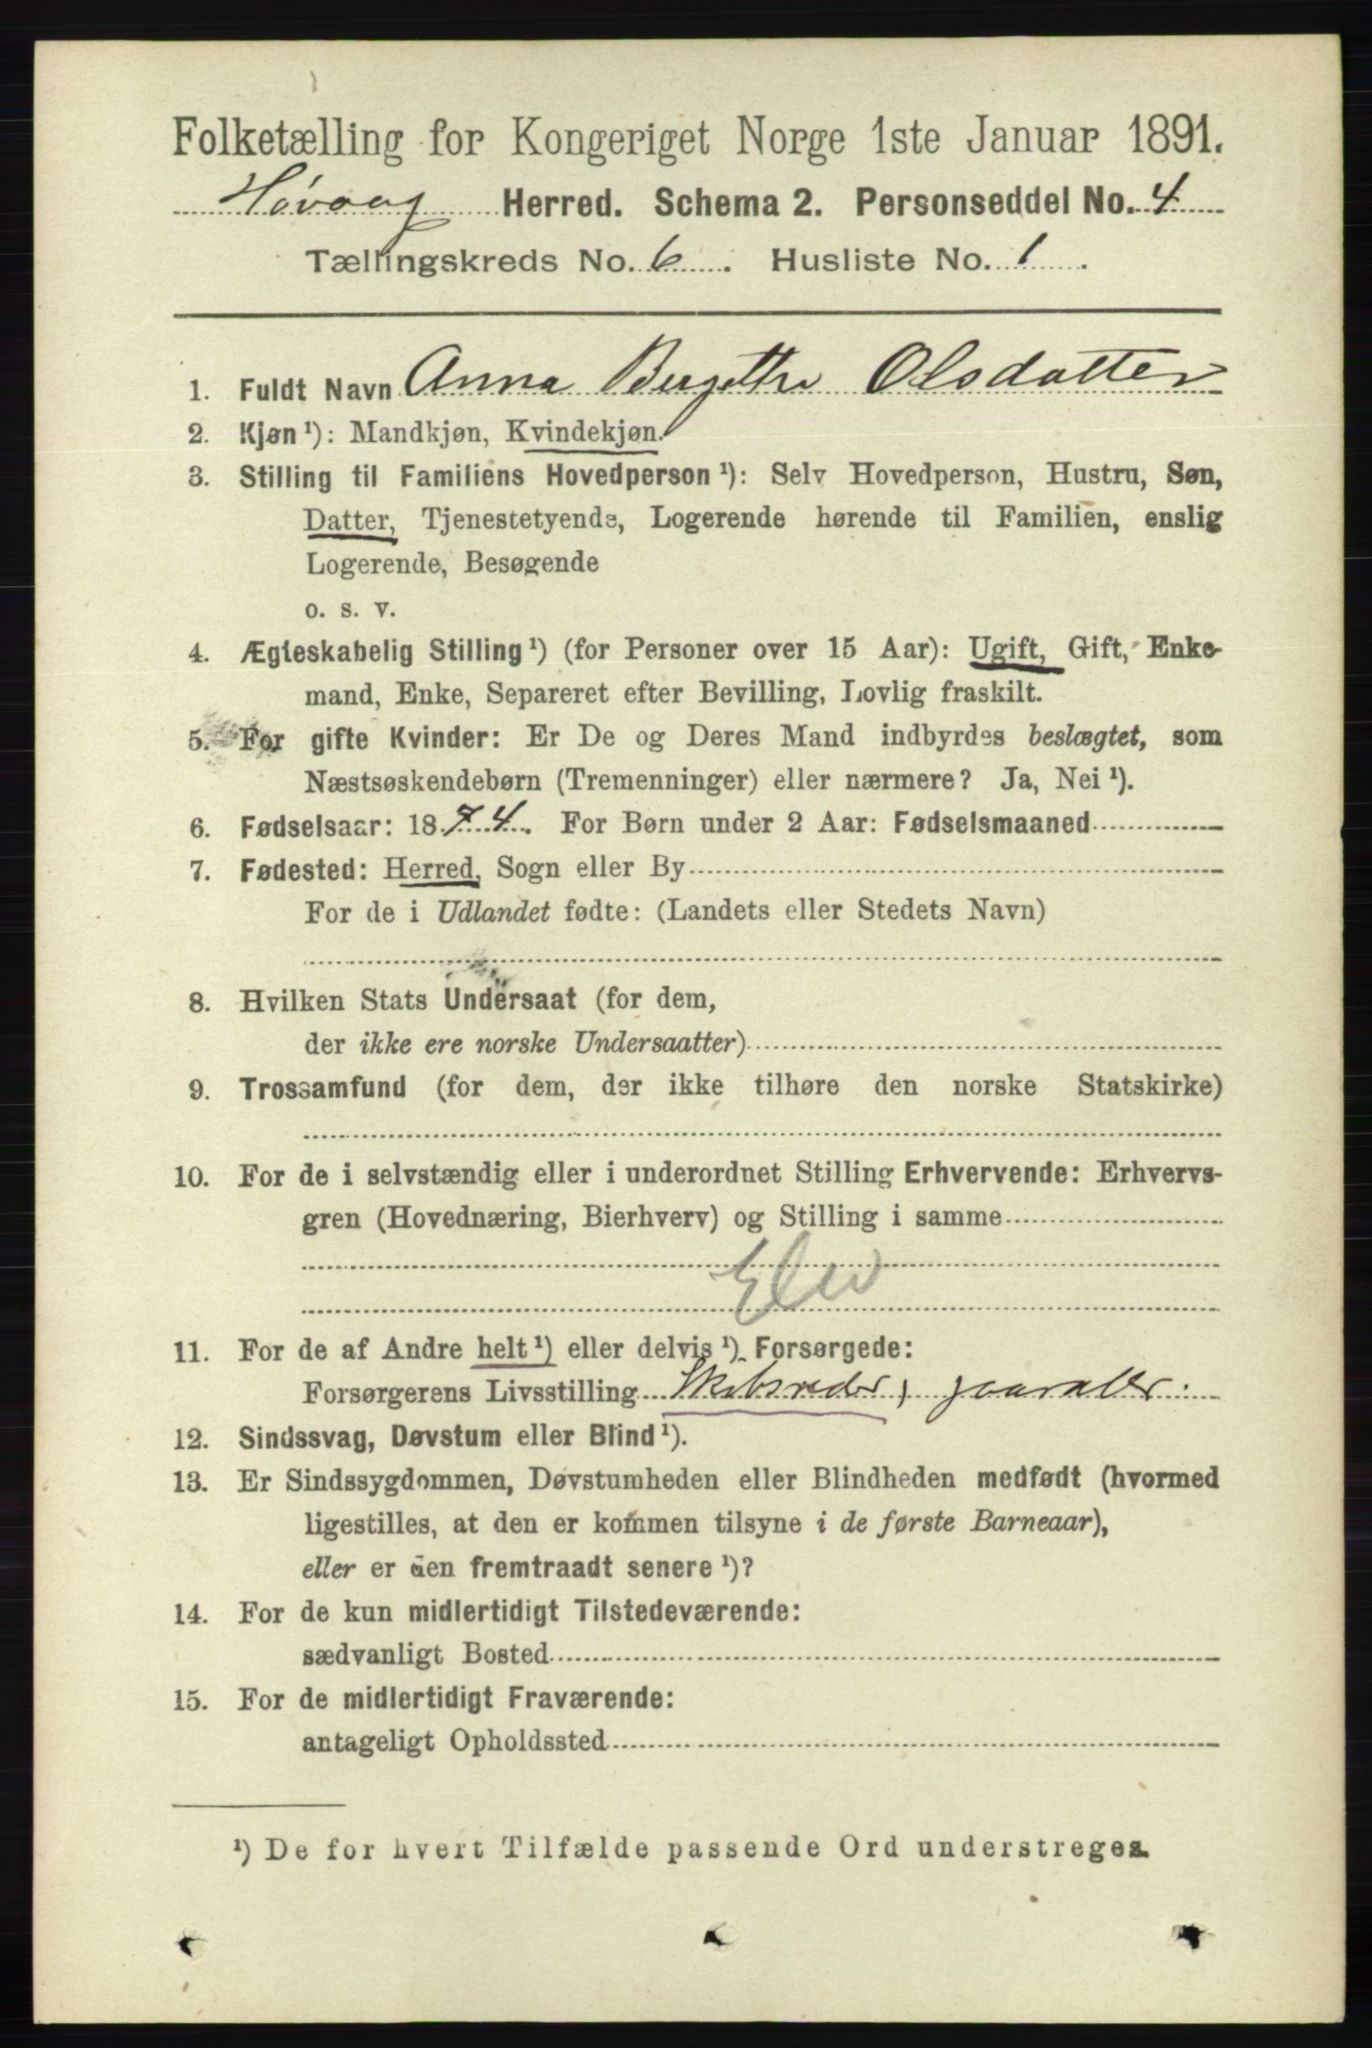 Folketælling for Kongeriget Norge 1ste Januar 1891.
Høvaag Herred. Schema 2. Personseddel No. 4
Tællingskreds No. 6. Husliste No. 1.
1. Fuldt Navn Anna Bergithe Olsdatter
2. Kjøn ¹): Mandkjøn, Kvindekjøn.
3. Stilling til Familiens Hovedperson ¹): Selv Hovedperson, Hustru, Søn,
Datter, Tjenestetyende, Logerende hørende til Familien, enslig
Logerende, Besøgende
o. s. v.
4. Ægteskabelig Stilling ¹) (for Personer over 15 Aar): Ugift, Gift, Enke-
mand, Enke, Separeret efter Bevilling, Lovlig fraskilt.
5. For gifte Kvinder: Er De og Deres Mand indbyrdes beslægtet, som
Næstsøskendebørn (Tremenninger) eller nærmere? Ja, Nei ¹).
6. Fødselsaar: 1874. For Børn under 2 Aar: Fødselsmaaned
7. Fødested: Herred, Sogn eller By
For de i Udlandet fødte: (Landets eller Stedets Navn)
8. Hvilken Stats Undersaat (for dem,
der ikke ere norske Undersaatter)
9. Trossamfund (for dem, der ikke tilhøre den norske Statskirke)
10. For de i selvstændig eller i underordnet Stilling Erhvervende: Erhvervs-
gren (Hovednæring, Bierhverv) og Stilling i samme
Elev
11. For de af Andre helt ¹) eller delvis ¹) Forsørgede:
Forsørgerens Livsstilling Skibsreder,
12. Sindssvag, Døvstum eller Blind ¹).
13. Er Sindssygdommen, Døvstumheden eller Blindheden medfødt (hvormed
ligestilles, at den er kommen tilsyne i de første Barneaar),
eller er den fremtraadt senere ¹)?
14. For de kun midlertidigt Tilstedeværende:
sædvanligt Bosted
15. For de midlertidigt Fraværende:
antageligt Opholdssted
¹) De for hvert Tilfælde passende Ord understreges.